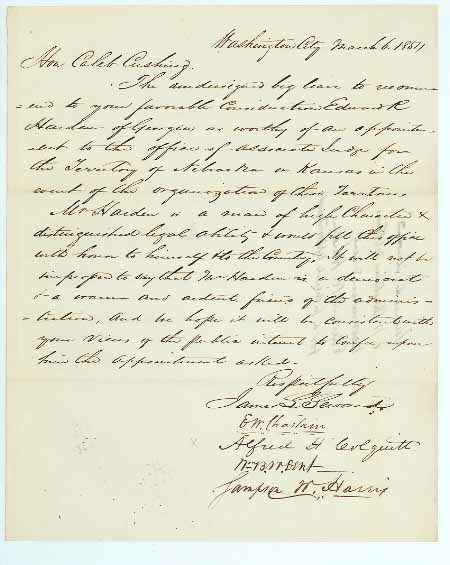 Washington City March 6. 1854
Hon Caleb Cushing.
The undersigned beg leave to recom-
-end to your favorable Consideration Edward R
Harden of Georgia as worthy of an appoint-
-ent to the office of Associate Judge for
the Territory of Nebraska or Kansas in the
event of the organization of those Territories
Mr Harden is a man of high Character &
distinguished legal ability & would fill the office
with honor to himself & to the Country. It will not be
improper to say that Mr Harden is a democrat
& a warm and ardent friend of the adminis-
-tration, and we hope it will be consistent with
your views of the public interest to confer upon
him the appointment asked.
Respectfully
James L. Seward
E W. Chastain
Alfred H Colquitt
Wm B. W. Dent
Sampson W. Harris